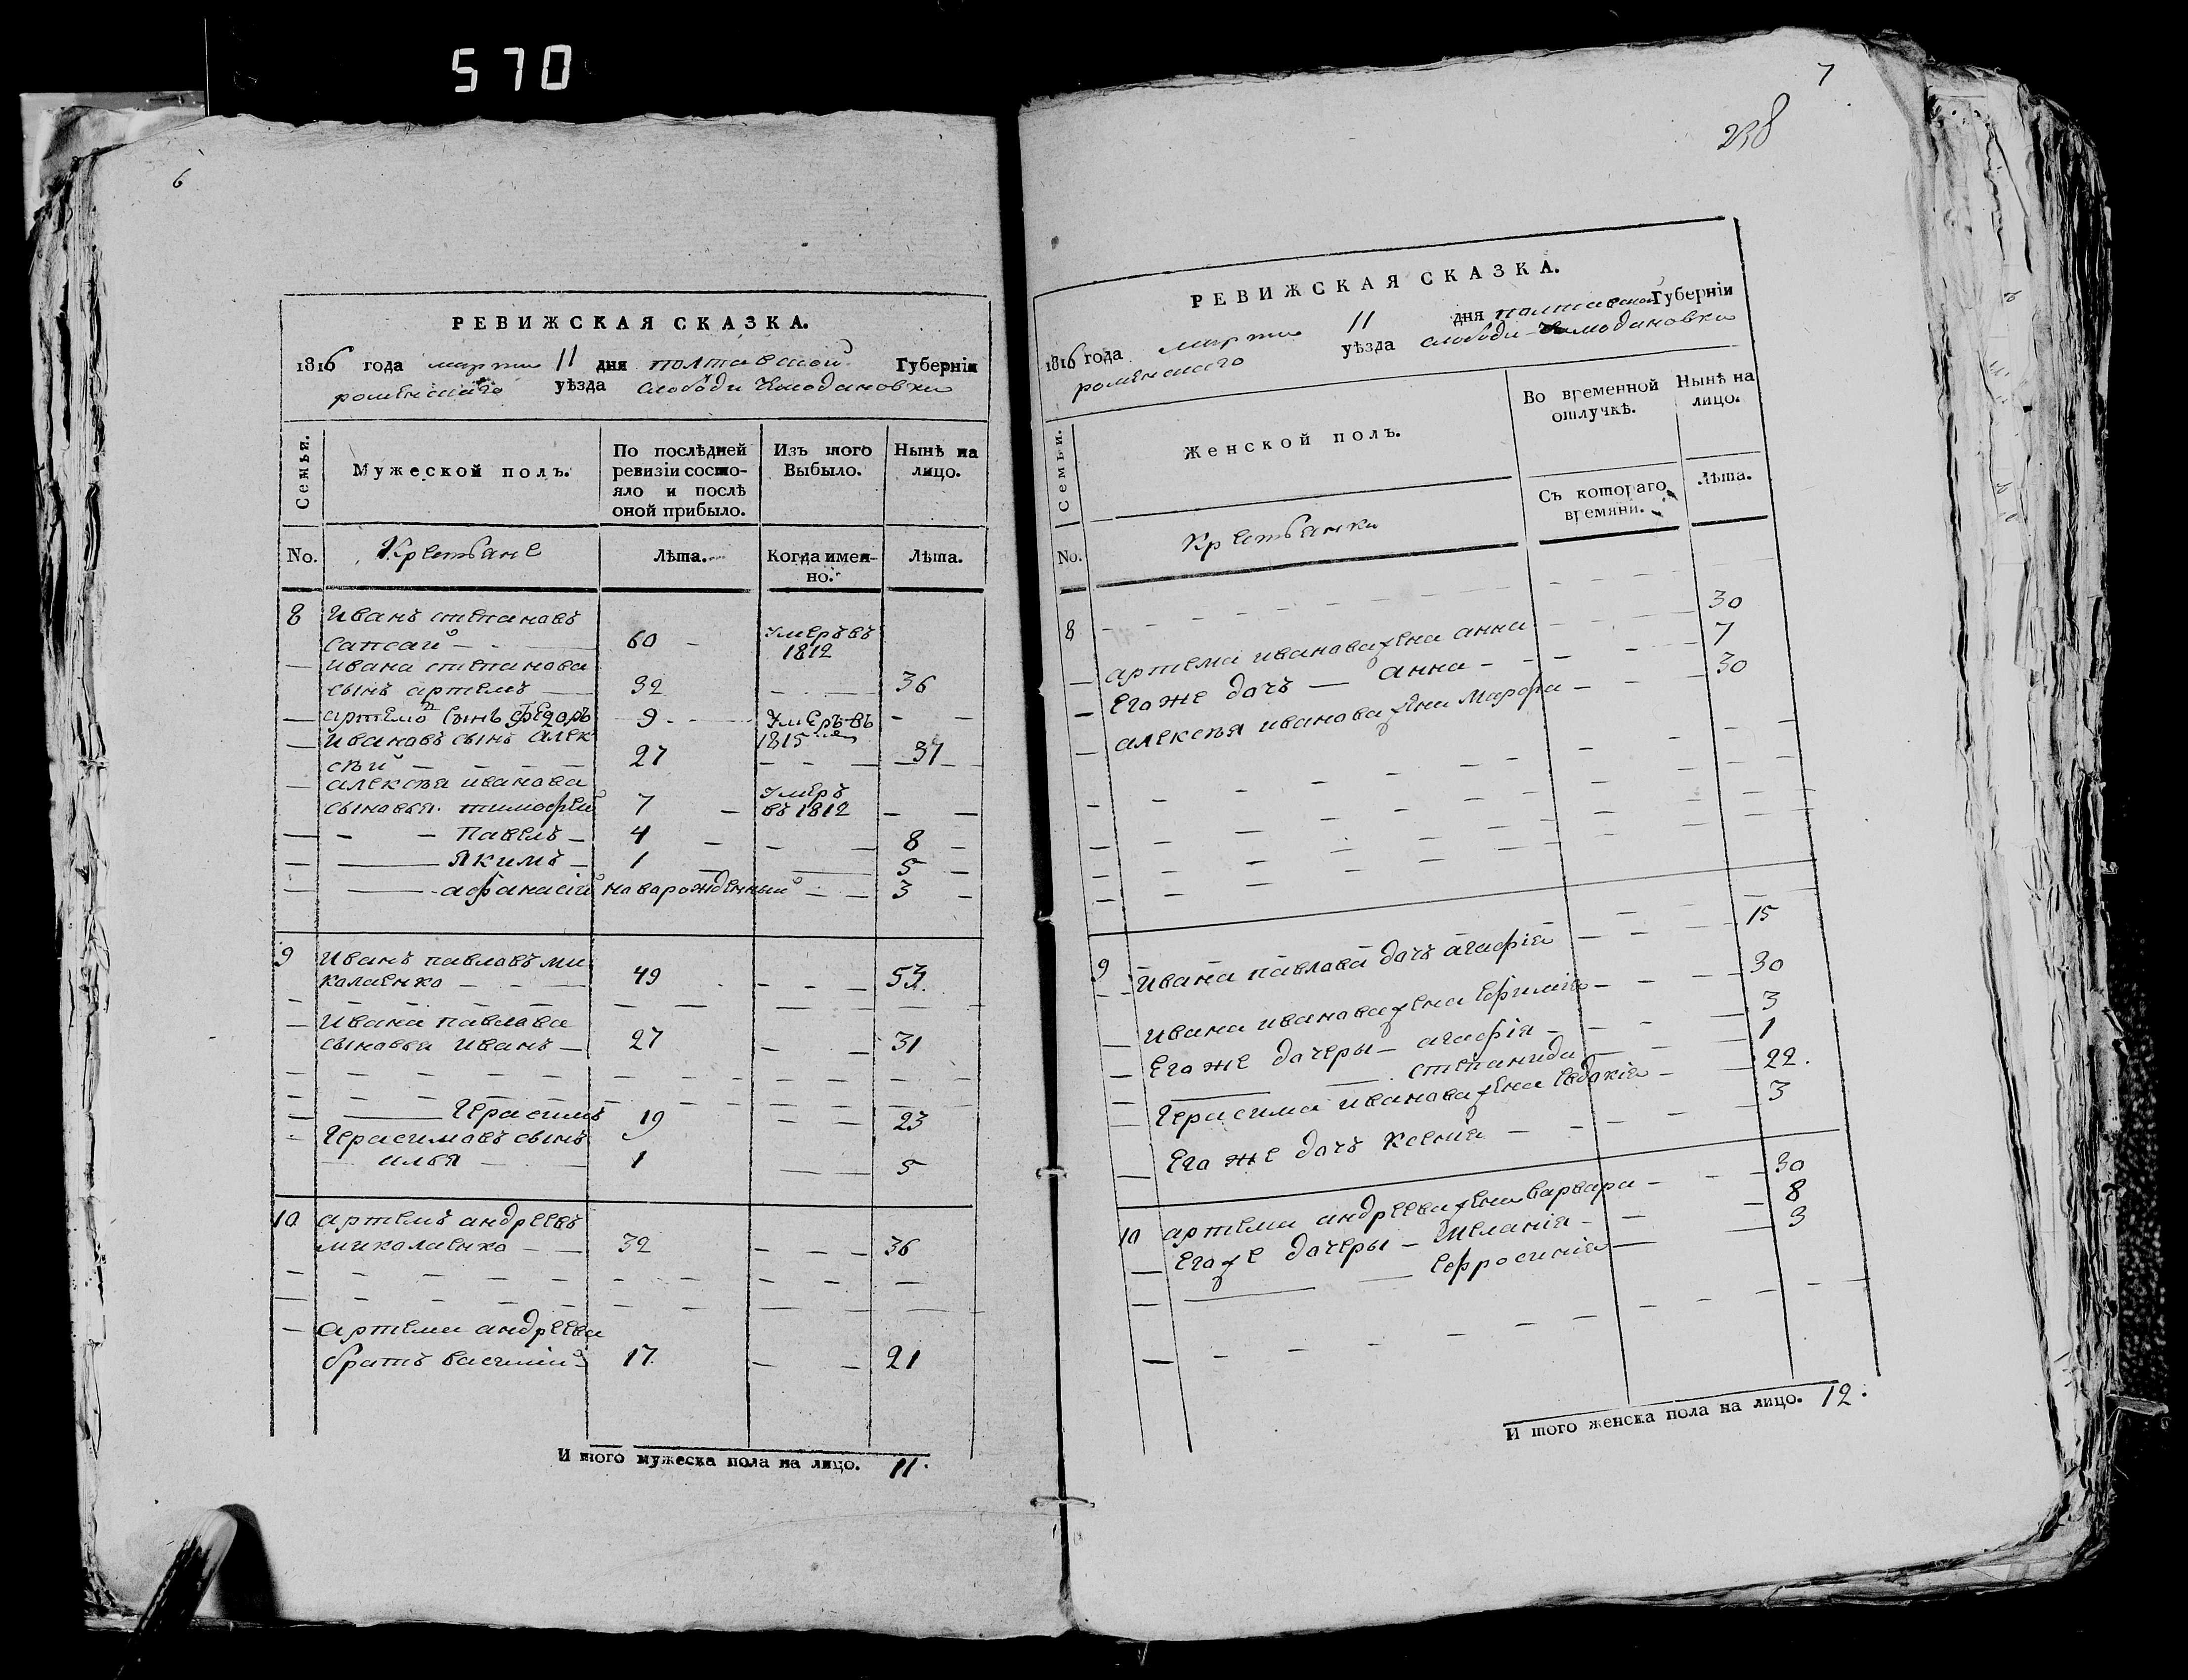 570
6
РЕВИЖСКАЯ СКАЗКА.
1816 года марта 11 дня полтавской Губерніи
роменскаго уѣзда слободи Чемодановки
Семьи.
Мужеской полъ.
По послѣдней ревизіи состояло и послѣ оной прибыло.
Изъ того Выбыло.
Нынѣ на лицо.
No. Крестьяне Лѣта. Когда именно. Лѣта.
8 Иванъ степановъ
сапсай — 60 — умеръ въ 1812
— ивана степанова
сынъ артемъ — 32 — — 36
— артемовъ сынъ федоръ 9 — умеръ въ 1815 — —
— Ивановъ сынъ алек
сѣй — 27 — — 31
— алексѣя иванова
сыновья тимофей 7 — умеръ въ 1812 — —
— — — Павелъ — 4 — — — 8 —
— — Якимъ — 1 — — 5 —
— — афанасій новарожденный — — 3 —
9 Иванъ павловъ ми
колаенко — 49 — — — 53
— Ивана павлова
сыновья иванъ — 27 — — 31
— — Герасимъ 19 — — 23
— Герасимовъ сынъ
илья — 1 — — 5
10 артемъ андреевъ
миколаенко — 32 — — — 36
— артема андреева
братъ василий 17 — — 21
И того мужеска пола на лицо. 11.
7
238
РЕВИЖСКАЯ СКАЗКА.
1816 года марта 11 дня полтавской Губерніи
роменскаго уѣзда слободи Чемодановки
Семьи.
Женской полъ.
Во временной отлучкѣ.
Нынѣ на лицо.
Съ котораго времяни.
Лѣта.
No. Крестьянки
8 — — — —
— артема иванова жена анна — — 30
— его же дочъ — анна — — 7
— алексѣя иванова жена Марфа — — 30
9 Ивана павлова дочъ агафія — — 15
— ивана иванова жена Ефимія — — 30
— его же дочеры — агафія — — 3
— — — степанида — — 1
— Герасима иванова жена Евдокія — — 22.
— его же дочъ Ксенія — — 3
10 артема андреева жена варвара — — 30
— его же дочеры — Меланія — — 8
— — — Ефросинія — 3
И того женска пола на лицо. 12.